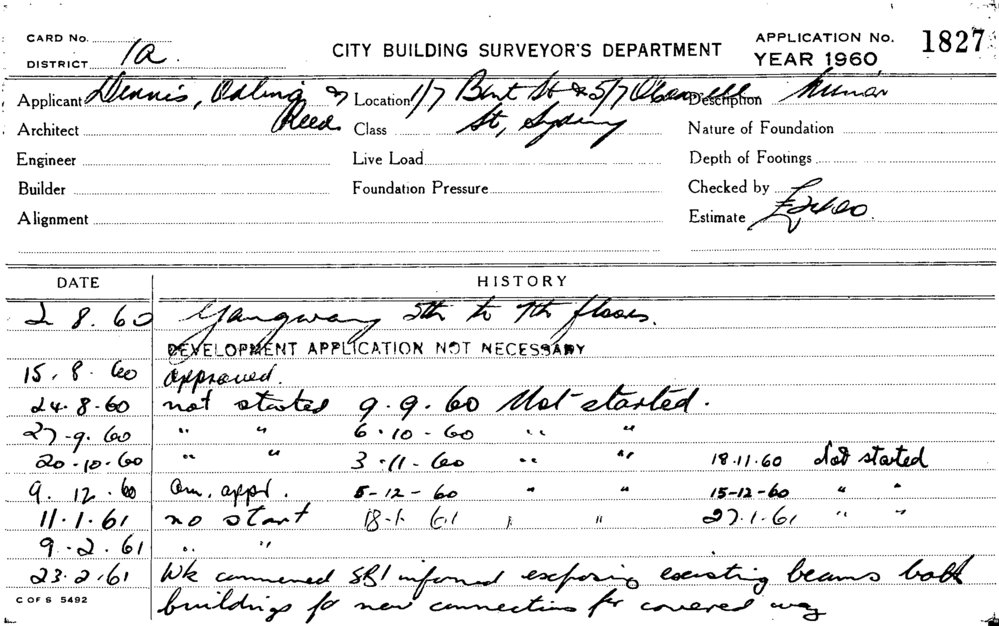 CARD No.
DISTRICT 1a
CITY BUILDING SURVEYOR'S DEPARTMENT
APPLICATION No. 1827
YEAR 1960
Applicant Dennis, Odling & Reed
Location 1/7 Bent St & 5/7 O'Connell St, Sydney
Description Minor
Architect
Class
Nature of Foundation
Engineer
Live Load
Depth of Footings
Builder
Foundation Pressure
Checked by
Alignment
Estimate £2400.
DATE HISTORY
2 8. 60 Gangway 5th to 7th floors.
DEVELOPMENT APPLICATION NOT NECESSARY
15. 8. 60 approved.
24. 8. 60 not started 9. 9. 60 Not started.
27-9. 60 " " 6. 10 - 60 " "
20. 10. 60 " " 3 -11- 60 " " 18.11.60 Not started
9. 12. 60 am. appl. 5-12-60 " " 15-12-60 " "
11. 1. 61 no start 18.1. 61 " " 27.1.61 " "
9. 2. 61 " "
23. 2. 61 Wk commenced SBI informed exposing existing beams both
buildings for new connections for covered way
C OF S 5492